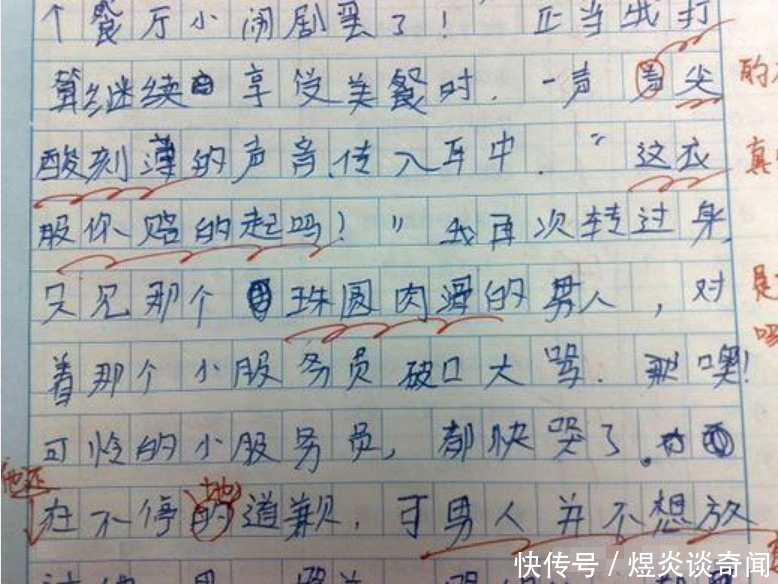 个餐厅小闹剧罢了！ 正当我打
算继续享受美餐时．一声尖
的
酸刻薄的声音传入耳中．“这衣
真
服你赔的起吗！”我再次转过身
只见那个珠圆肉滑的男人，对
是
吗
着那个小服务员破口大骂．噢！
可怜的小服务员，都快哭了．
他还
在不停的道歉，可男人并不想放
地
快传号／煜炎谈奇闻